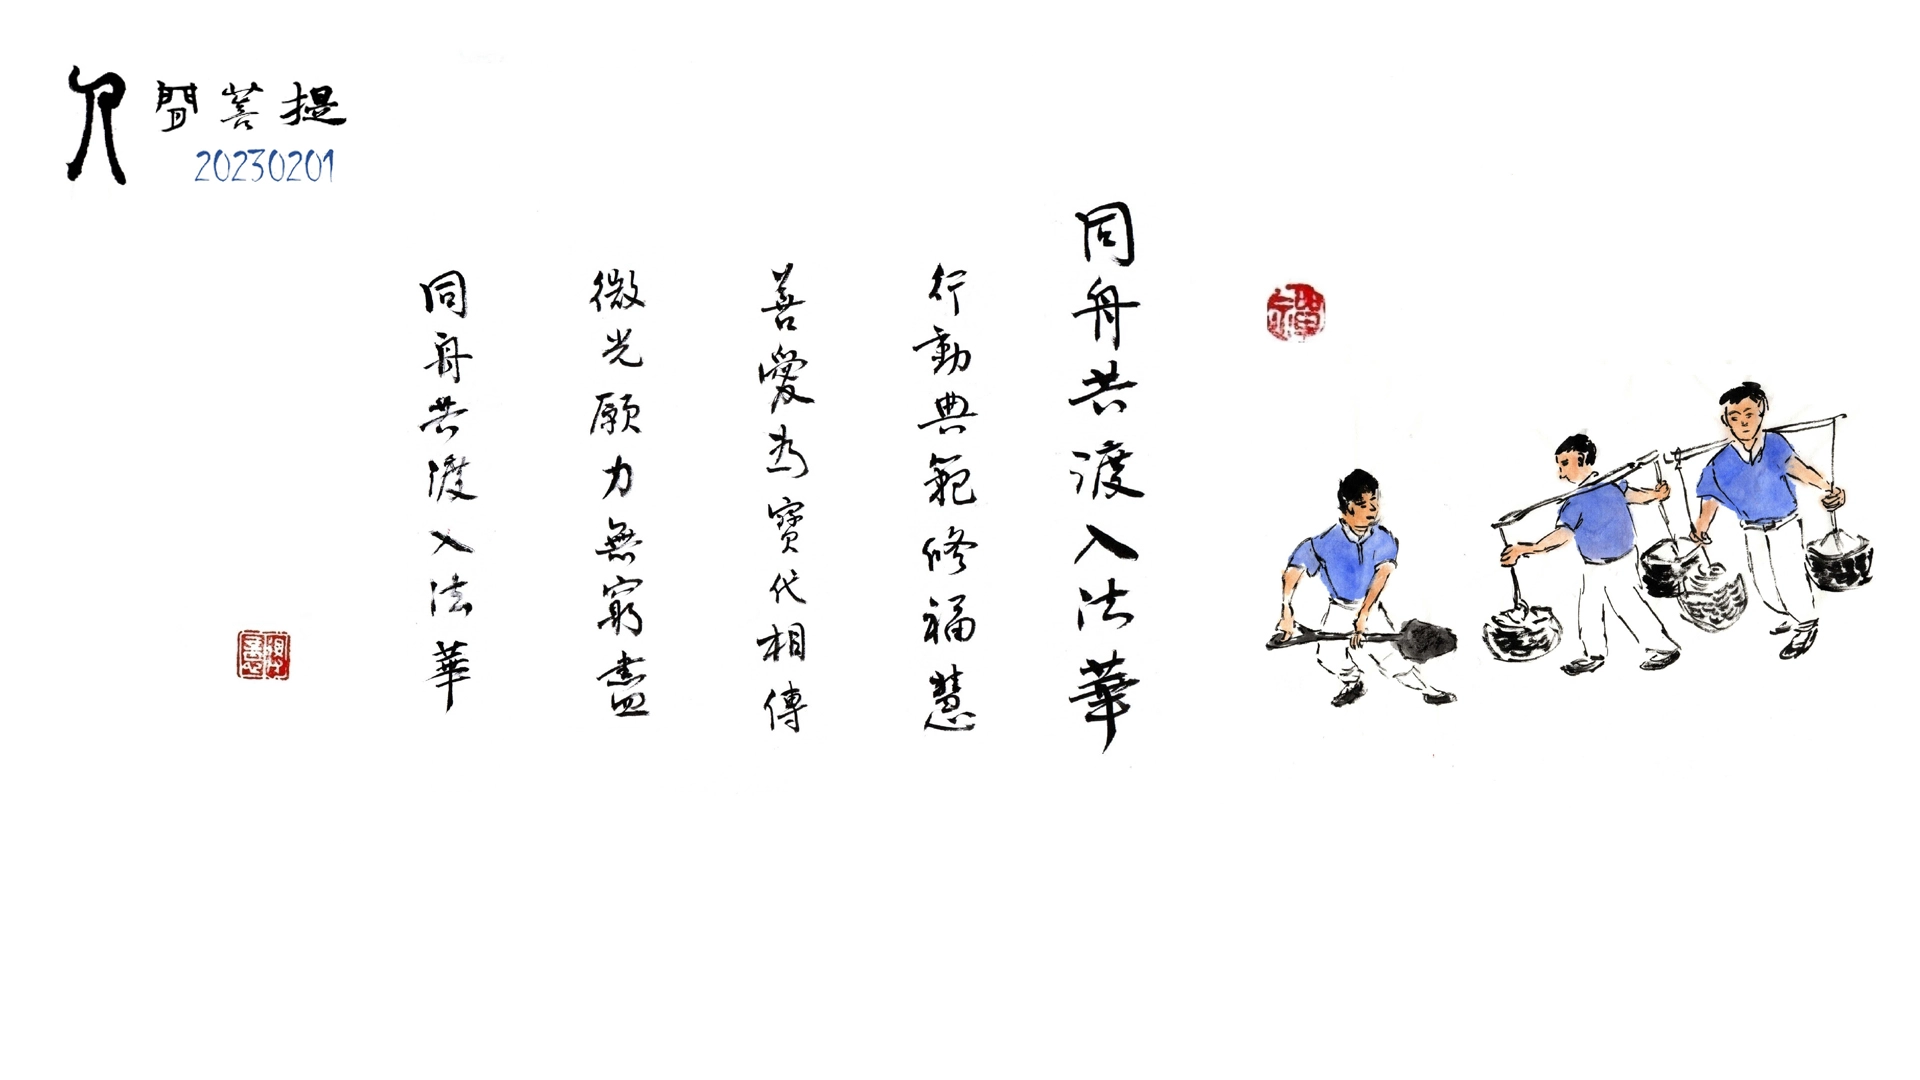 人間菩提
20230201
同舟共渡入法華
行動典範修福慧
善愛為寶代相傳
微光願力無窮盡
同舟共渡入法華
禪